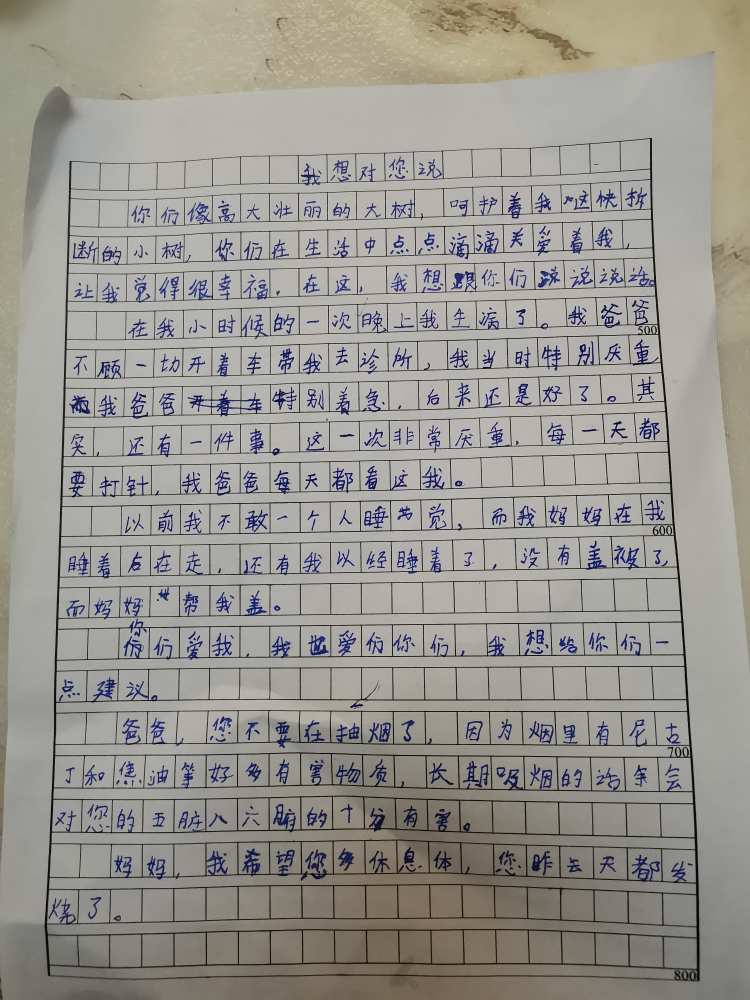 我想对您说
你们像高大壮丽的大树，呵护着我这快折
断的小树，你们在生活中点点滴滴关爱着我，
让我觉得很幸福。在这，我想跟你们说说话。
在我小时候的一次晚上我生病了。我爸爸
500
不顾一切开着车带我去诊所，我当时特别厌重
我爸爸特别着急，后来还是好了。其
实，还有一件事。这一次非常厌重，每一天都
要打针，我爸爸每天都看这我。
以前我不敢一个人睡觉，而我妈妈在我
600
睡着后在走，还有我以经睡着了，没有盖被了，
而妈妈帮我盖。
你们爱我，我也爱你们，我想给你们一
点建议。
爸爸，您不要在抽烟了，因为烟里有尼古
700
丁和焦油等好多有害物质，长期吸烟的话余会
对您的五脏八六腑的十分有害。
妈妈，我希望您多休息体，您昨去天都发
烧了。
800